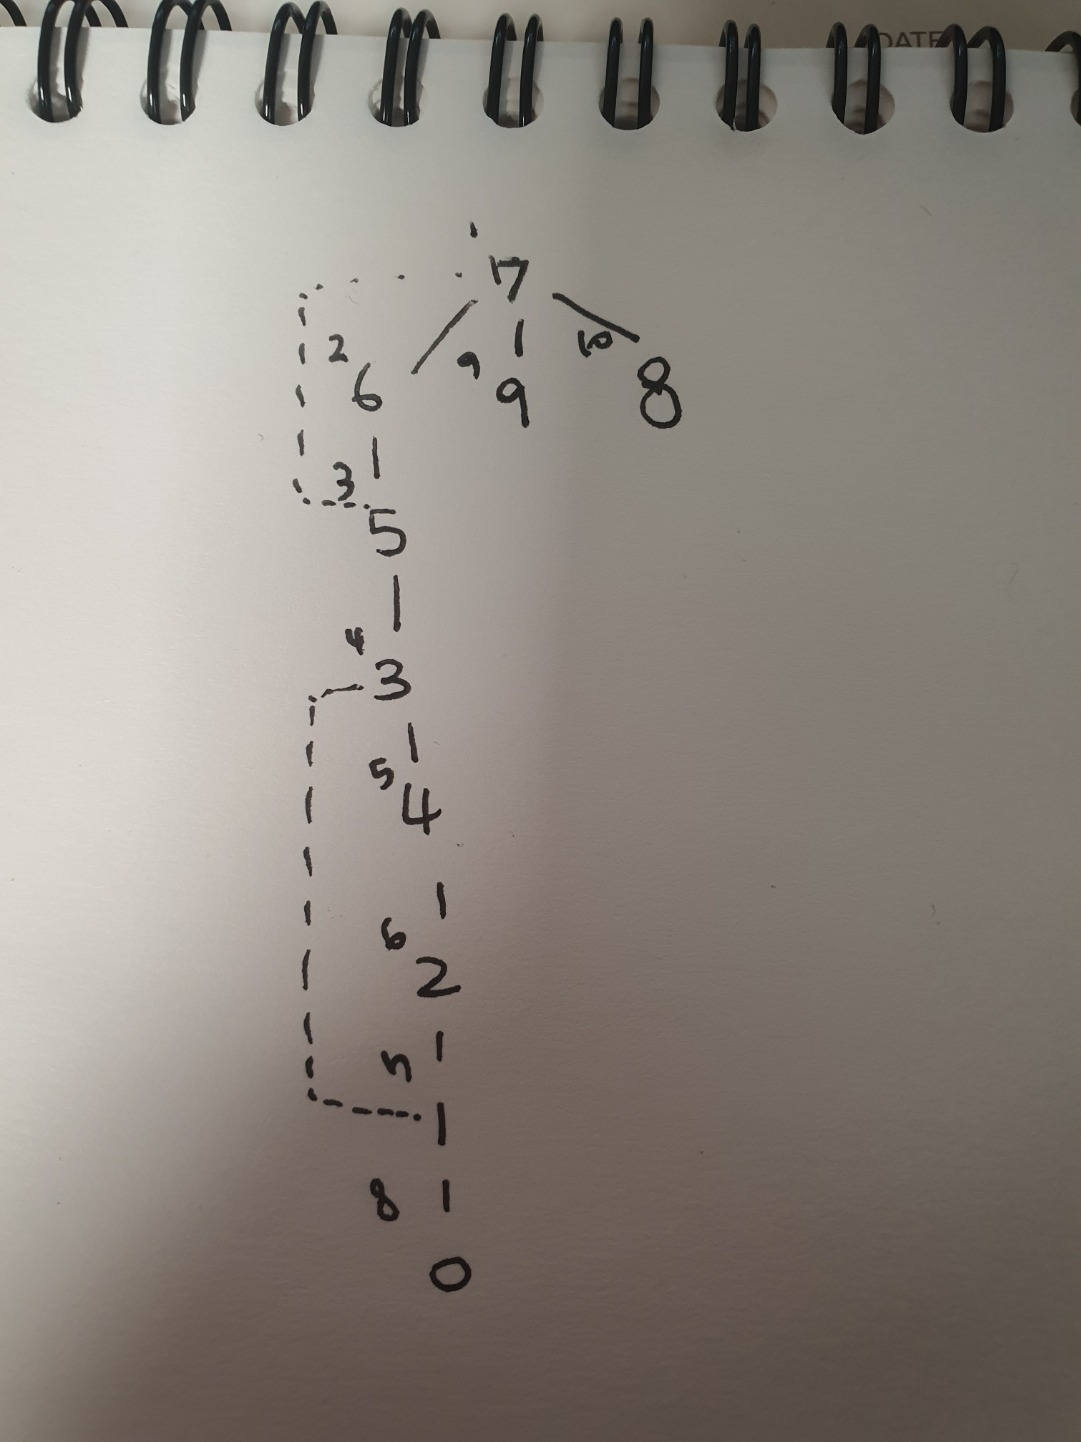 DATE
1
7
2
6
9
9
10
8
3
5
4
3
5
4
6
2
7
1
8
0